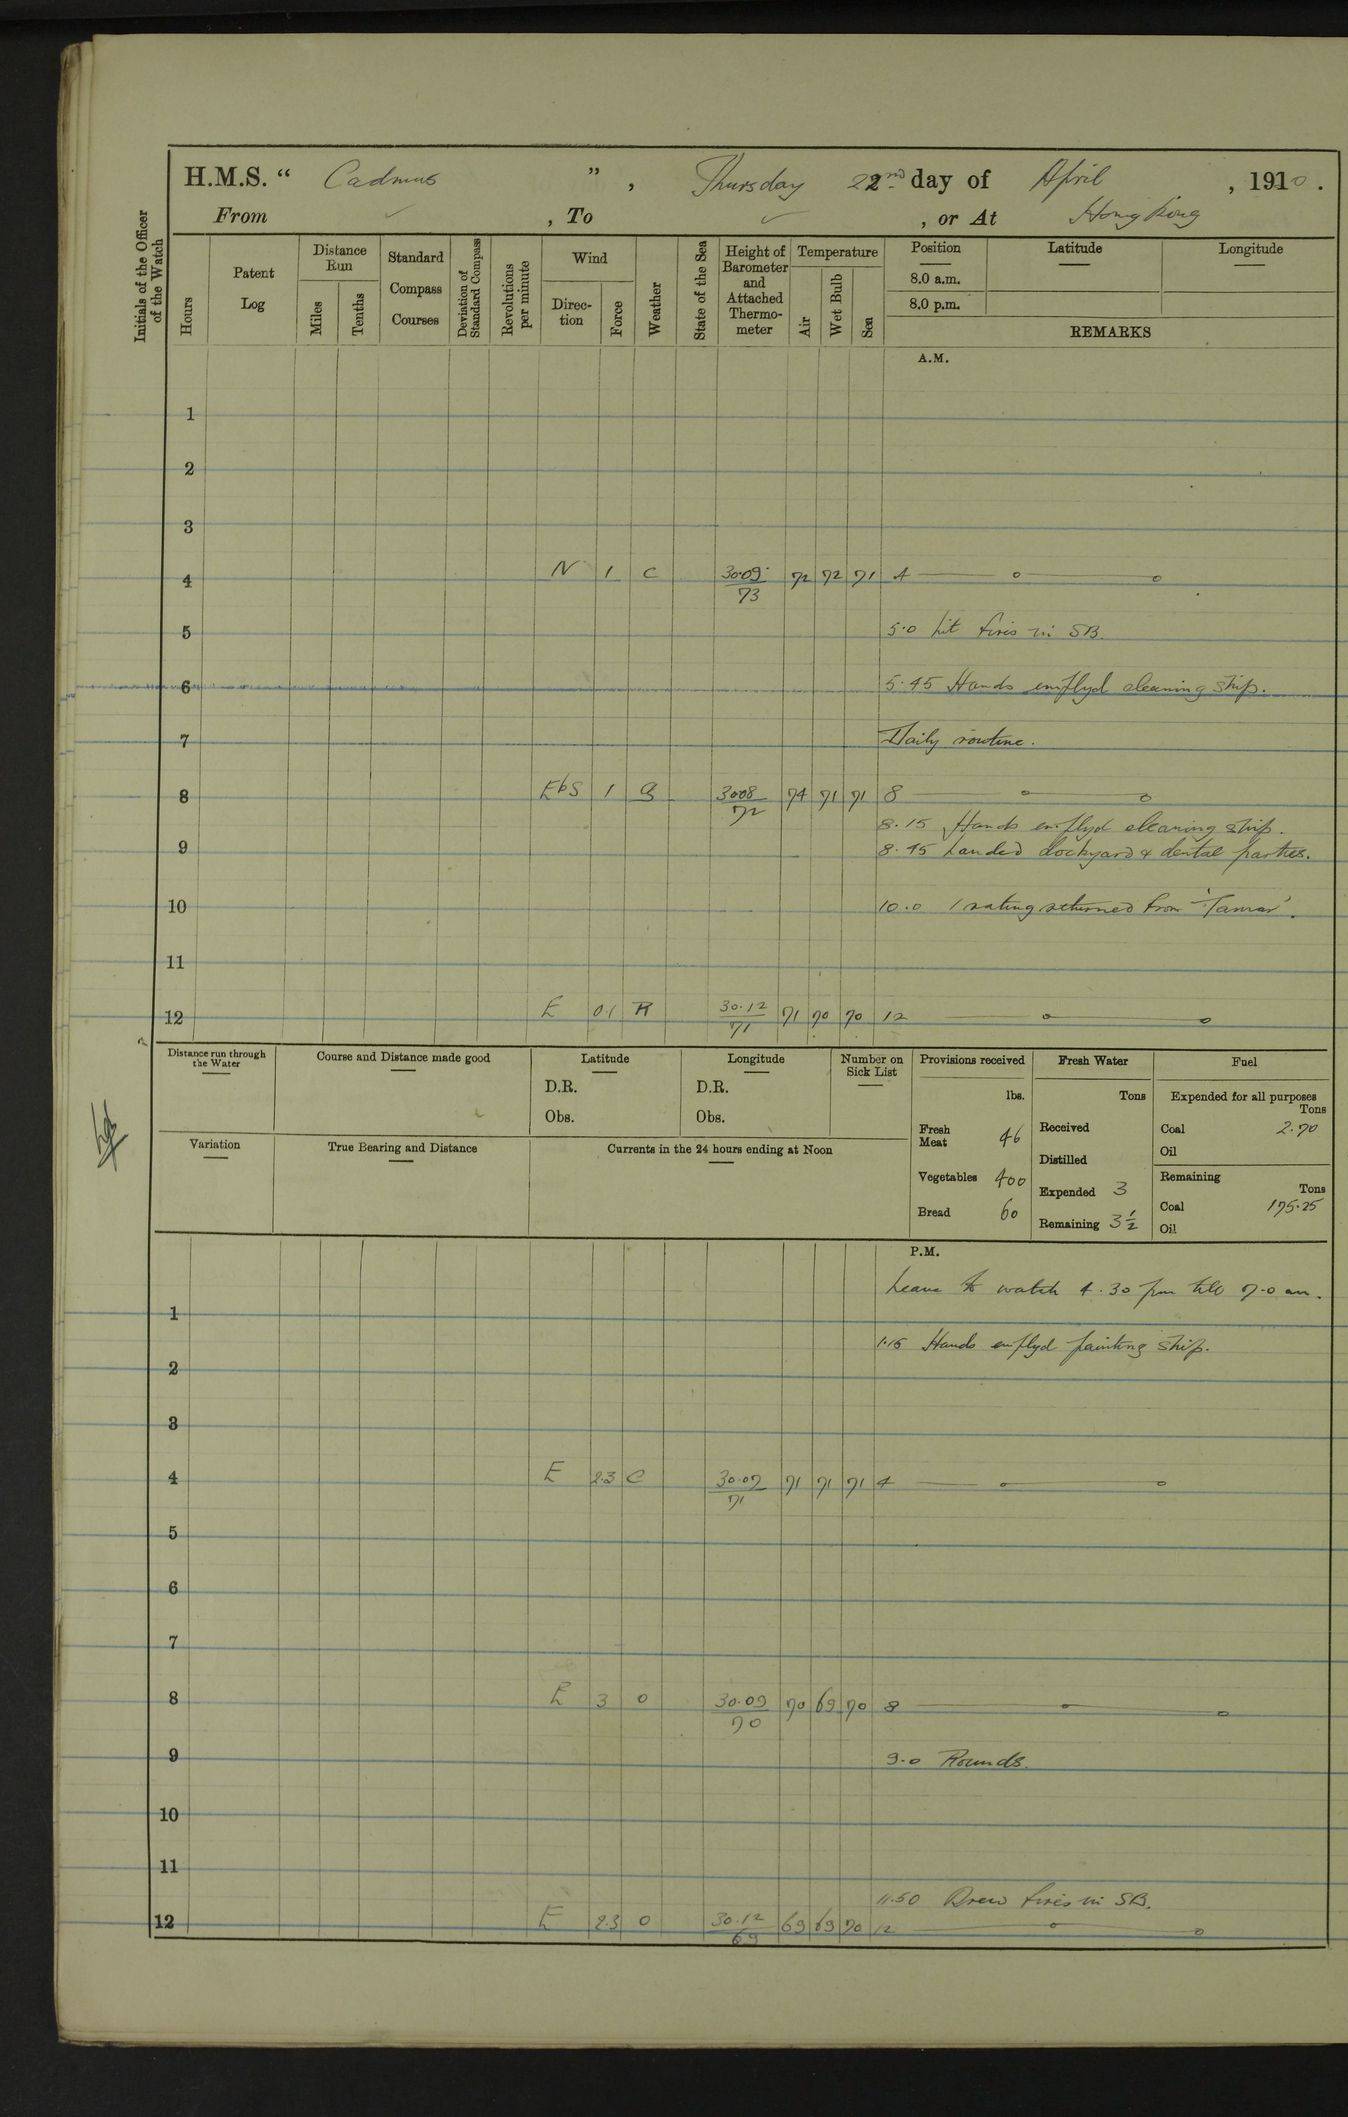 H.M.S. “ Cadmus ” , Thursday 22nd day of April , 1910 .
From ✓ , To ✓ , or At Hong Kong
Initials of the Officer of the Watch
Hours
Patent Log
Distance Run
Miles
Tenths
Standard Compass Courses
Deviation of Standard Compass
Revolutions per minute
Wind
Direc-tion
Force
Weather
State of the Sea
Height of Barometer and Attached Thermo-meter
Temperature
Air
Wet Bulb
Sea
Position Latitude Longitude
8.0 a.m.
8.0 p.m.
REMARKS
A.M.
1
2
3
4 N 1 C 30.09 / 73 72 72 71 4
5 5.0 Lit fires in SB.
6 5.45 Hands employd cleaning ship.
7 Daily routine.
8 EbS 1 g 3008 / 72 74 71 71 8
8.15 Hands employd cleaning ship.
9 8.45 Landed dockyard & dental parties.
10 10.0 1 rating returned from 'Tamar'.
11
12 E 0.1 R 30.12 / 71 71 70 70 12
Distance run through the Water
Course and Distance made good
Latitude
D.R.
Obs.
Longitude
D.R.
Obs.
Number on Sick List
Variation
True Bearing and Distance
Currents in the 24 hours ending at Noon
Provisions received
lbs.
Fresh Meat 46
Vegetables 400
Bread 60
Fresh Water
Tons
Received
Distilled
Expended 3
Remaining 3½
Fuel
Expended for all purposes
Tons
Coal 2.70
Oil
Remaining
Tons
Coal 175.25
Oil
P.M.
Leave to watch 4.30 pm till 7.0 am.
1
1.15 Hands employd painting ship.
2
3
4 E 2.3 C 30.07 / 71 71 71 71 4
5
6
7
8 E 3 0 30.09 / 70 70 69 70 8
9 9.0 Rounds.
10
11
11.50 Drew fires in SB.
12 E 2.3 0 30.12 / 69 69 69 70 12